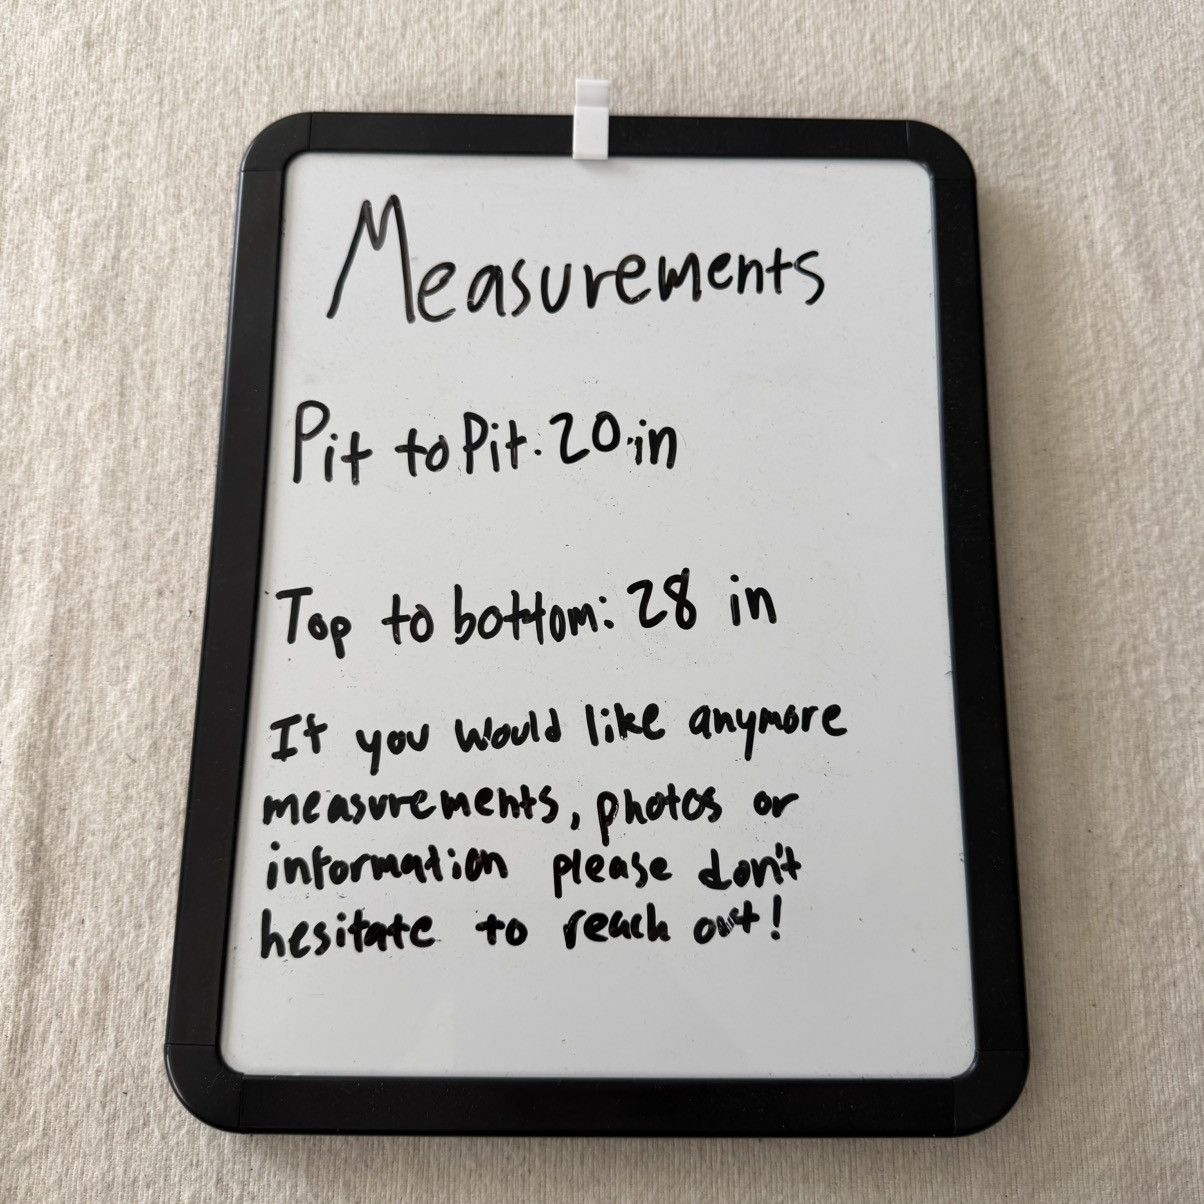 Measurements
Pit to Pit: 20 in
Top to bottom: 28 in
If you would like anymore
measurements, photos or
information please don't
hesitate to reach out!